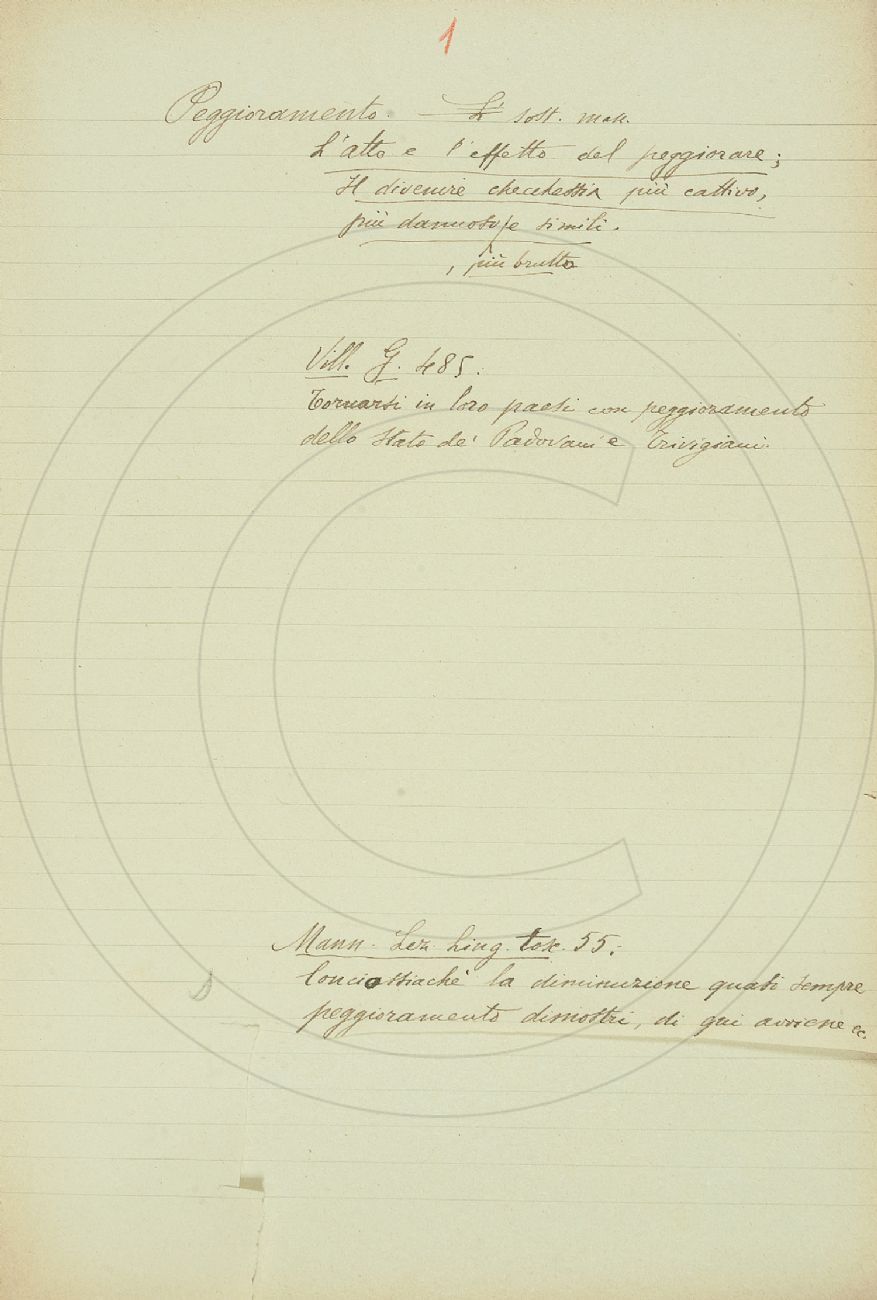 1
Peggioramento. — L' sost. mas.
L'atto e l'effetto del peggiorare;
Il divenire checchessia più cattivo,
più dannoso, e simili.
, più brutto
Vill. G. 485.
Tornarsi in loro paesi con peggioramento
dello stato de' Padovani e Trivigiani.
Mann. Lez. Ling. tosc. 55.
Conciossiachè la diminuzione quasi sempre
peggioramento dimostri, di qui avviene ec.